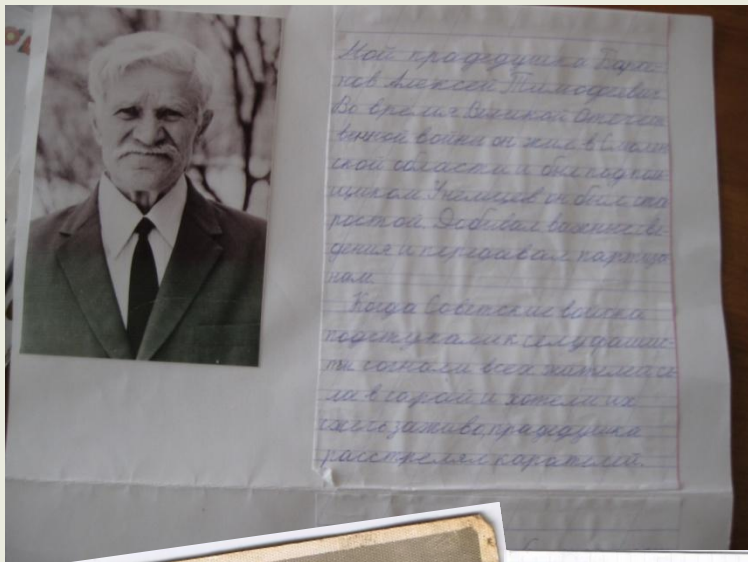 Мой прадедушка
Алексей Тимофеевич
Во время Великой Отечест-
венной войны он жил в Смолен-
ской области и был подполь-
щиком. У немцев он был ста-
ростой. Добывал важные све-
дения и передавал партиза-
нам.
Когда Советские войска
подступали к селу, фашис-
ты согнали всех жителей се-
ла в сарай и хотели их
сжечь заживо, прадедушка
расстрелял карателей.